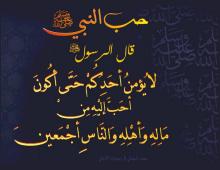 حب النبي ﷺ
قال الرسول ﷺ
لا يؤمن أحدكم حتى أكون
أحب إليه من
ماله وأهله والناس أجمعين